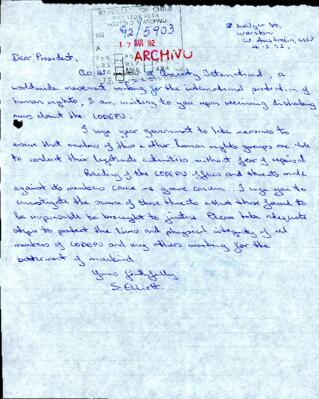 REPUBLICA DE CHILE
92/5903
17 MAR 92
ARCHIVO
W Australia
4.3.92.
Dear President,
As a of Amnesty International, a
worldwide movement working for the international protection of
human rights, I am writing to you upon receiving disturbing
news about the CODEPU.
I urge your government to take measures to
ensure that members of this & other human rights groups are able
to conduct their legitimate activities without fear of reprisal.
Raiding of the CODEPU offices and threats made
against its members cause me grave concern. I urge you to
investigate the source of these threats & that those found to
be responsible be brought to justice. Please take adequate
steps to protect the lives and physical integrity of all
members of CODEPU and any others working for the
betterment of mankind.
Yours faithfully
S. Elliott.